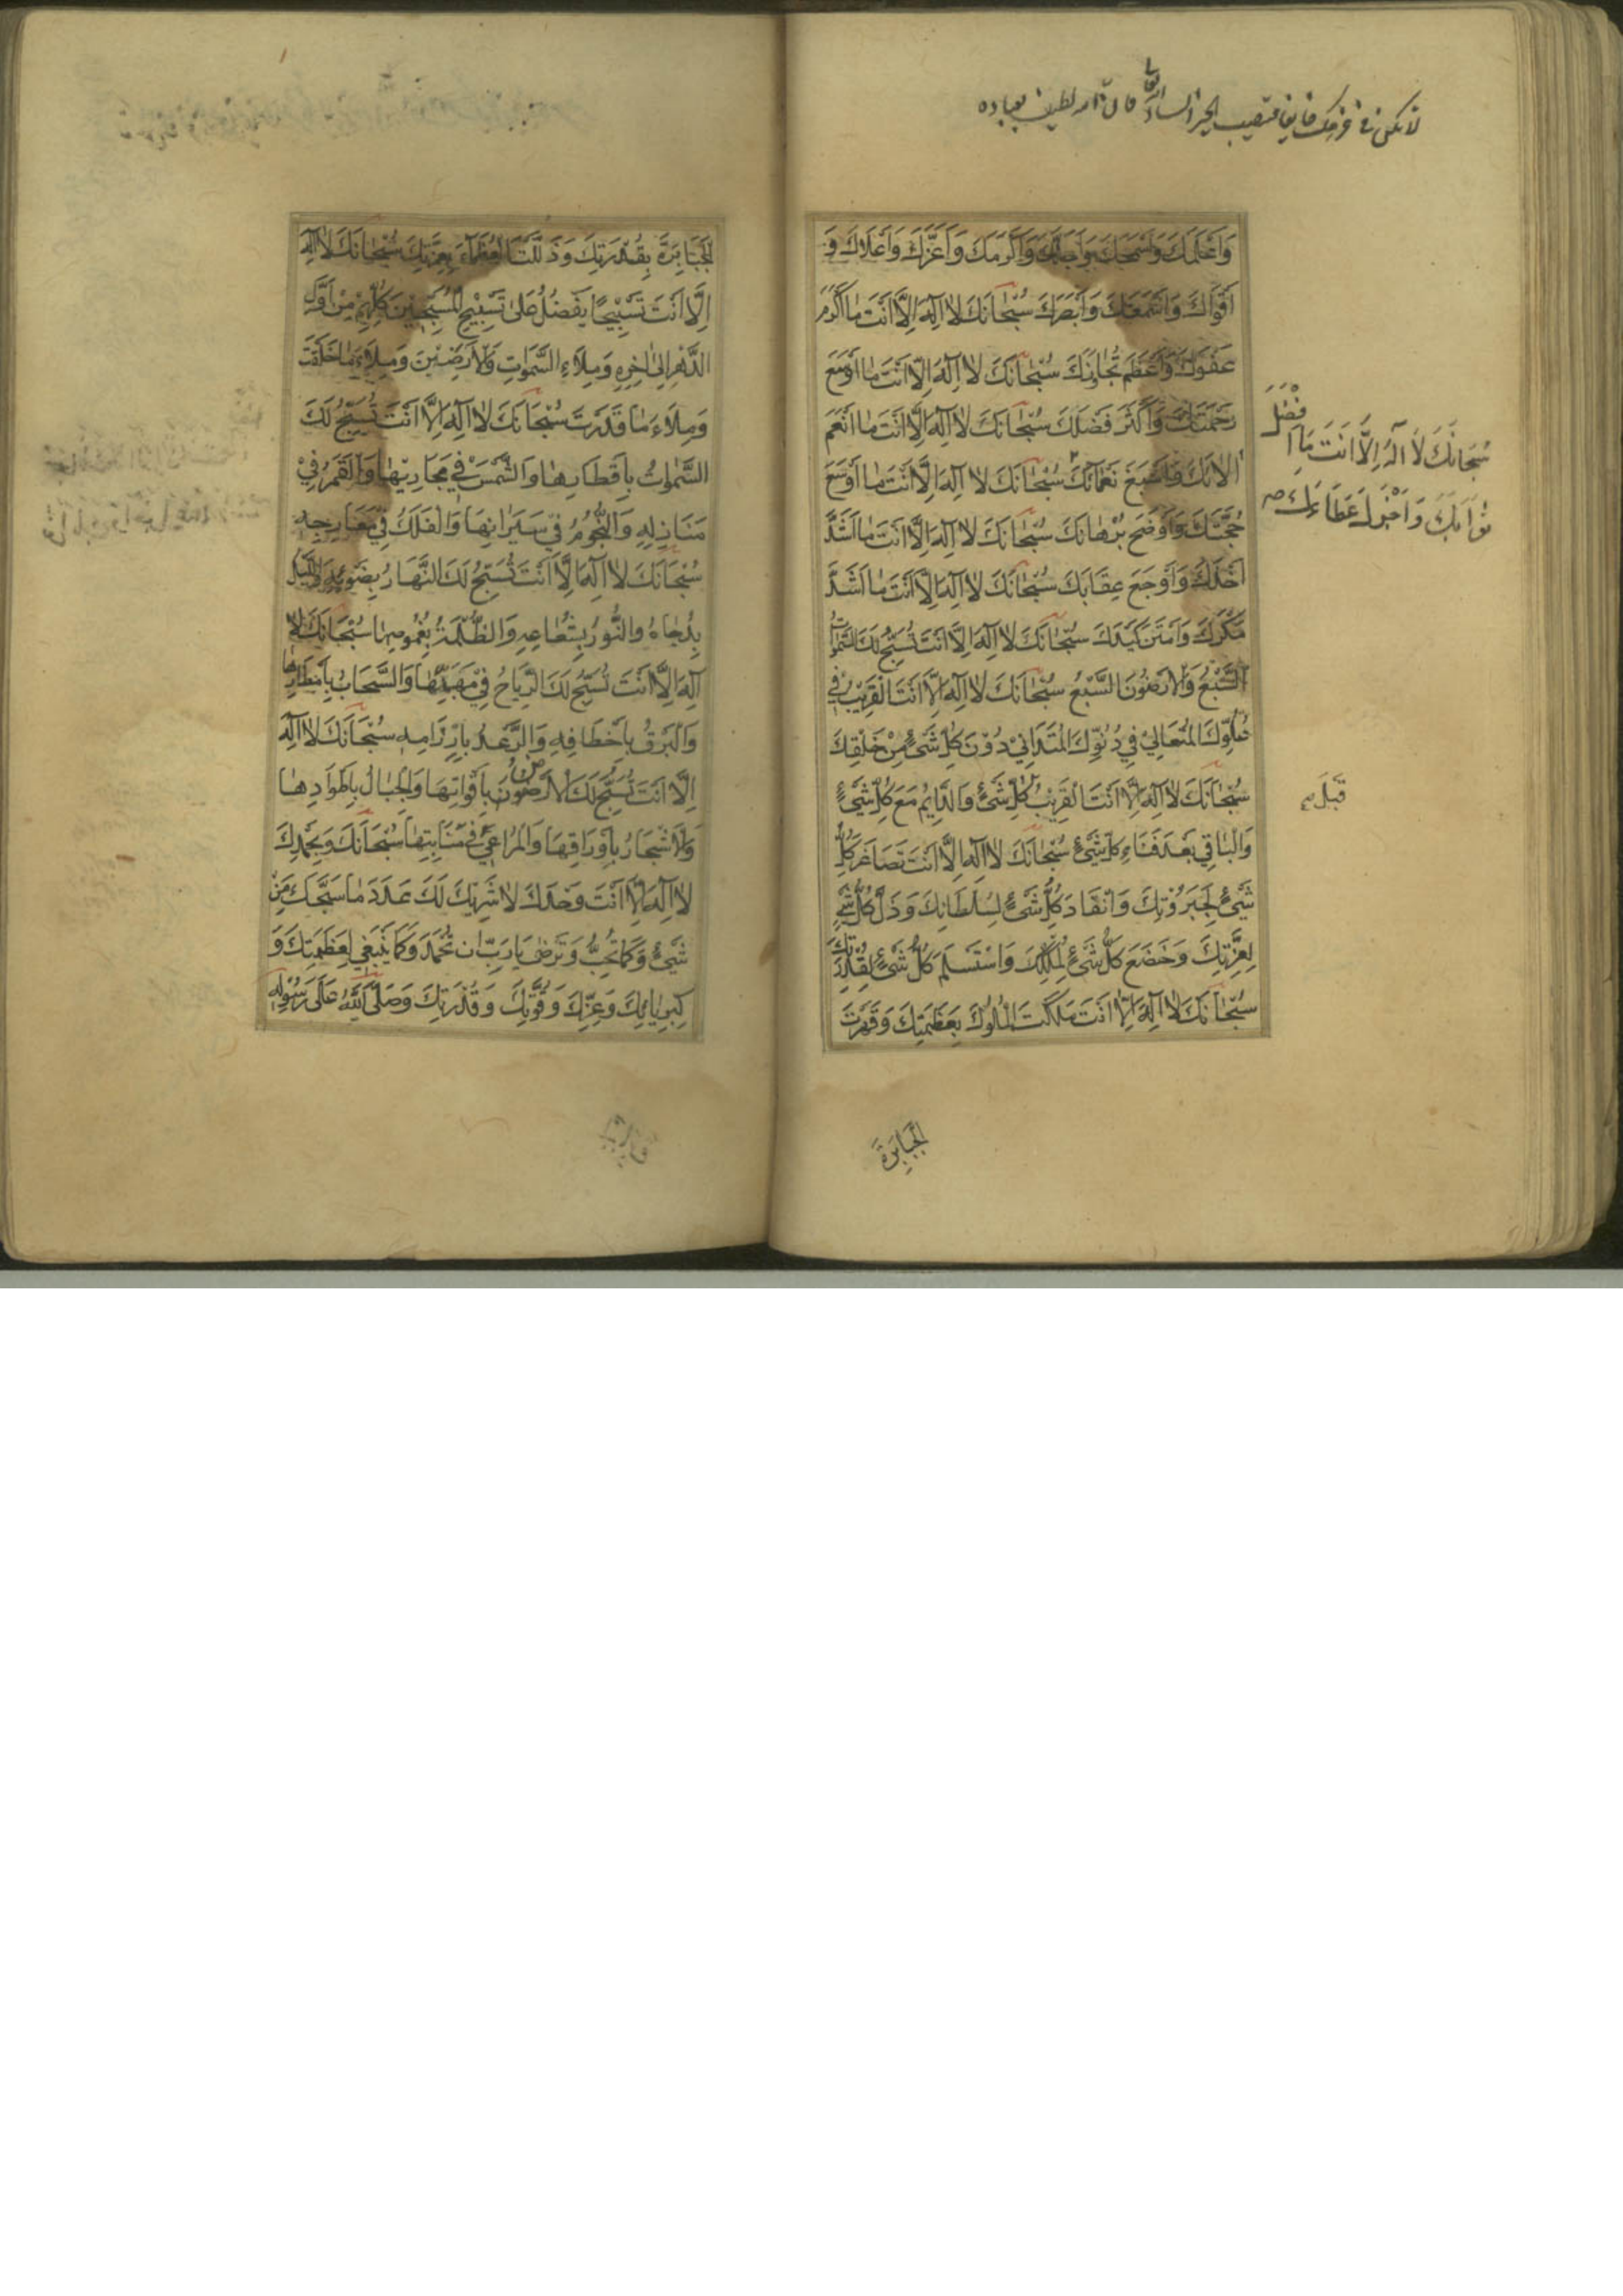 لا تكن في
لطيف بعباده
وَاَعْلَمَكَ وَاَسْمَحَكَ وَاَجَلَّكَ وَاَكْرَمَكَ وَاَعَزَّكَ وَاَعْلَاكَ وَ
اَقْوَاكَ وَاَسْمَعَكَ وَاَبْصَرَكَ سُبْحَانَكَ لا اِلٰهَ اِلَّا اَنْتَ مَا اَكْرَمَ
عَفْوَكَ وَاَعْظَمَ تَجَاوُزَكَ سُبْحَانَكَ لا اِلٰهَ اِلَّا اَنْتَ مَا اَوْسَعَ
رَحْمَتَكَ وَاَكْثَرَ فَضْلَكَ سُبْحَانَكَ لا اِلٰهَ اِلَّا اَنْتَ مَا اَنْعَمَ
آلائَكَ وَاَسْبَغَ نَعْمَائَكَ سُبْحَانَكَ لا اِلٰهَ اِلَّا اَنْتَ مَا اَوْسَعَ
حُجَّتَكَ وَاَوْضَحَ بُرْهَانَكَ سُبْحَانَكَ لا اِلٰهَ اِلَّا اَنْتَ مَا اَشَدَّ
اَخْذَكَ وَاَوْجَعَ عِقَابَكَ سُبْحَانَكَ لا اِلٰهَ اِلَّا اَنْتَ مَا اَشَدَّ
مَكْرَكَ وَاَمْتَنَ كَيْدَكَ سُبْحَانَكَ لا اِلٰهَ اِلَّا اَنْتَ تُسَبِّحُ لَكَ السَّمٰوَاتُ
السَّبْعُ وَالْاَرَضُونَ السَّبْعُ سُبْحَانَكَ لا اِلٰهَ اِلَّا اَنْتَ الْقَرِيبُ فِي
عُلُوِّكَ الْمُتَعَالِيْ فِي دُنُوِّكَ الْمُتَدَانِيْ دُوْنَ كُلِّ شَيْءٍ مِنْ خَلْقِكَ
سُبْحَانَكَ لا اِلٰهَ اِلَّا اَنْتَ الْقَرِيْبُ كُلِّ شَيْءٍ وَالدَّايِمُ مَعَ كُلِّ شَيْءٍ
وَالْبَاقِي بَعْدَ فَنَاءِ كُلِّ شَيْءٍ سُبْحَانَكَ لا اِلٰهَ اِلَّا اَنْتَ تَصَاغَرَ كُلُّ
شَيْءٍ لِجَبَرُوْتِكَ وَانْقَادَ كُلُّ شَيْءٍ لِسُلْطَانِكَ وَذَلَّ كُلُّ شَيْءٍ
لِعِزَّتِكَ وَخَضَعَ كُلُّ شَيْءٍ لِمُلْكِكَ وَاسْتَسْلَمَ كُلُّ شَيْءٍ لِقُدْرَتِكَ
سُبْحَانَكَ لا اِلٰهَ اِلَّا اَنْتَ مَلَكْتَ الْمُلُوكَ بِعَظَمَتِكَ وَقَهَرْتَ
سُبْحَانَكَ لَا اِلٰهَ اِلَّا اَنْتَ مَا اَفْضَلَ
ثَوَابَكَ وَاَجْزَلَ عَطَاءَكَ صح
قَبْلَ صح
الْجَبَابِرَةَ
الْجَبَابِرَةَ بِقُدْرَتِكَ وَذَلَّلْتَ الْعُظَمَآءَ بِعِزَّتِكَ سُبْحَانَكَ لا اِلٰهَ
اِلَّا اَنْتَ تَسْبِيْحًا يَفْضُلُ عَلٰى تَسْبِيْحِ الْمُسَبِّحِيْنَ كُلِّهِمْ مِنْ اَوَّلِ
الدَّهْرِ اِلٰى اٰخِرِهِ وَمِلَاءَ السَّمٰوَاتِ وَالْاَرَضِيْنَ وَمِلَاءَ مَا خَلَقْتَ
وَمِلَاءَ مَا قَدَّرْتَ سُبْحَانَكَ لا اِلٰهَ اِلَّا اَنْتَ تُسَبِّحُ لَكَ
السَّمٰوَاتُ بِاَقْطَارِهَا وَالشَّمْسُ فِي مَجَارِيْهَا وَالْقَمَرُ فِيْ
مَنَازِلِهِ وَالنُّجُوْمُ فِيْ سَيَرَانِهَا وَالْفَلَكُ فِيْ مَعَارِجِهِ
سُبْحَانَكَ لا اِلٰهَ اِلَّا اَنْتَ يُسَبِّحُ لَكَ النَّهَارُ بِضَوْئِهِ وَاللَّيْلُ
بِدُجَاهُ وَالنُّورُ بِشُعَاعِهِ وَالظُّلْمَةُ بِغُمُوضِهَا سُبْحَانَكَ لا
اِلٰهَ اِلَّا اَنْتَ تُسَبِّحُ لَكَ الرِّيَاحُ فِيْ مَهَبِّهَا وَالسَّحَابُ بِاَمْطَارِهَا
وَالْبَرْقُ بِاَخْطَافِهِ وَالرَّعْدُ بِاِرْزَامِهِ سُبْحَانَكَ لا اِلٰهَ
اِلَّا اَنْتَ تُسَبِّحُ لَكَ الْاَرَضُوْنَ بِاَقْوَاتِهَا وَالْجِبَالُ بِاَطْوَادِهَا
وَالْاَشْجَارُ بِاَوْرَاقِهَا وَالْمَرَاعِيْ فِيْ مَنَابِتِهَا سُبْحَانَكَ وَبِحَمْدِكَ
لا اِلٰهَ اِلَّا اَنْتَ وَحْدَكَ لا شَرِيْكَ لَكَ عَدَدَ مَا سَبَّحَكَ مِنْ
شَيْءٍ وَكَمَا تُحِبُّ وَتَرْضٰى يَا رَبِّ ان تُحْمَدَ وَكَمَا يَنْبَغِي لِعَظَمَتِكَ وَ
كِبْرِيَائِكَ وَعِزِّكَ وَقُوَّتِكَ وَقُدْرَتِكَ وَصَلَّى اللّٰهُ عَلَى رَسُوْلِهِ